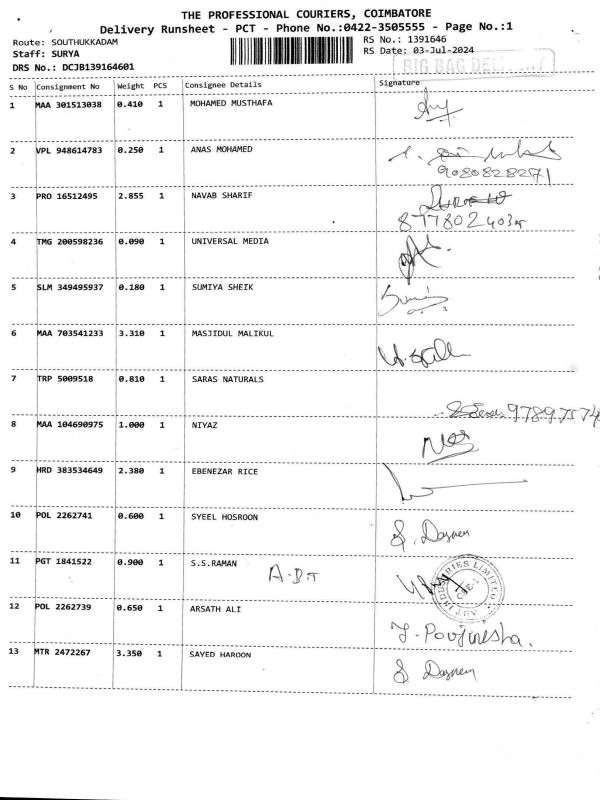 THE PROFESSIONAL COURIERS, COIMBATORE
Delivery Runsheet - PCT - Phone No.:0422-3505555 - Page No.:1
Route: SOUTHUKKADAM
RS No.: 1391646
Staff: SURYA
RS Date: 03-Jul-2024
DRS No.: DCJB139164601
BIG BAG DELIVERY
S No Consignment No Weight PCS Consignee Details Signature
1 MAA 301513038 0.410 1 MOHAMED MUSTHAFA
2 VPL 948614783 0.250 1 ANAS MOHAMED
9080828271
3 PRO 16512495 2.855 1 NAVAB SHARIF
8778024035
4 TMG 200598236 0.090 1 UNIVERSAL MEDIA
5 SLM 349495937 0.180 1 SUMIYA SHEIK
6 MAA 703541233 3.310 1 MASJIDUL MALIKUL
7 TRP 5009518 0.810 1 SARAS NATURALS
97897574
8 MAA 104690975 1.000 1 NIYAZ
9 HRD 383534649 2.380 1 EBENEZAR RICE
10 POL 2262741 0.600 1 SYEEL HOSROON
11 PGT 1841522 0.900 1 S.S.RAMAN
A.D.T
INDUSTRIES LIMITED
12 POL 2262739 0.650 1 ARSATH ALI
13 MTR 2472267 3.350 1 SAYED HAROON